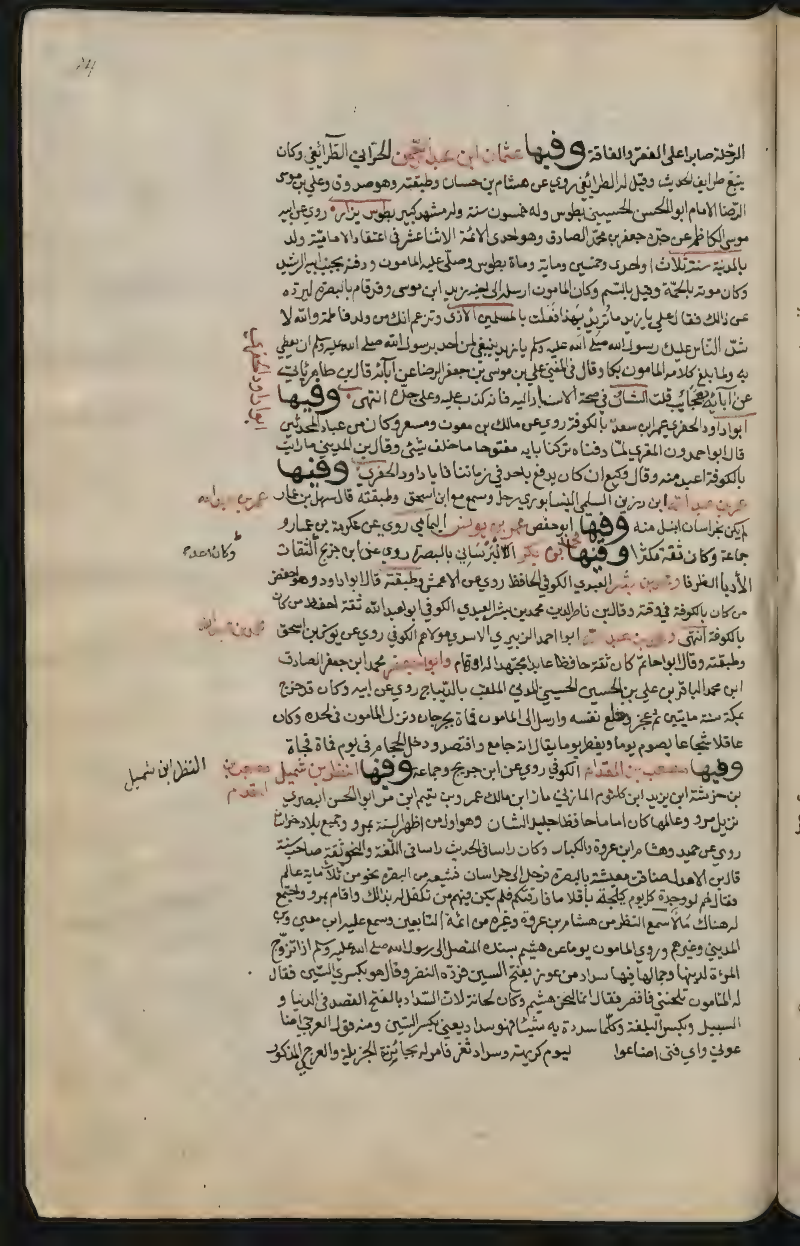 الرحلة صابرا على الفقر والفاقة وفيها عثمان ابن عبد الرحمن الحراني الطرائفي وكان
يتبع طرايف الحديث وقيل له الطرائفي روي عن هشام بن حسان وطبقته وهو صدوق وعلي بن موسى
الرضا الامام ابو الحسن الحسيني بطوس وله خمسون سنة وله مشهد كبير بطوس يزار روي عن ابيه
موسى الكاظم عن جده جعفر بن محمد الصادق وهو احدى الائمة الاثنا عشر في اعتقاد الامامية ولد
بالمدينة سنة ثلاث او احدى وخمسين وماية ومات بطوس وصلى عليه المامون ودفنه بجنب ابيه الرشيد
وكان موته بالحمى وقيل بالسم وكان المامون ارسله الى اخيه زيد ابن موسى وقد قام بالبصرة ليرده
عن ذالك فقال علي يا زيد ما تريد بهذا فعلت بالمسلمين الاذى وتزعم انك من ولد فاطمة والله لا
شد الناس عليك رسول الله صلى الله عليه وسلم يا زيد ينبغي لمن اخذ برسول الله صلى الله عليه وسلم ان يعطي
به ولما بلغ كلامه المامون بكا وقال في المغني علي بن موسى بن جعفر الرضا عن آبائه قال بن طاهر ياتي
عن آبائه بعجايب قلت الشان في صحة الاسناد اليه فانه كذب عليه وعلى جده انتهى وفيها
ابو داود الحفري عمر ابن سعد بالكوفة روي عن مالك بن مغوت ومسعر وكان من عباد المحدثين
قال ابو احمدون المقري لما دفناه تركنا بابه مفتوحا ما خلف شئ وقال بن المديني ما رايت
بالكوفة اعبد منه وقال وكيع ان كان يدفع باحد في زماننا فابا داود الحفري وفيها
عمر بن عبد الله ابن رزين السلمي النيسابوري رحل وسمع مع ابن اسحق وطبقته قال سهل بن عمار
لم يكن بخراسان انبل منه وفيها ابو حفص عمر بن يونس اليمامي روي عن عكرمة بن عمار و
جماعة وكان ثقة مكثرا وفيها محمد بن بكر البرساني بالبصرة روي عن ابن جريج الثقات
الادبا الظرفا ومحمد بن بشر العبدي الكوفي الحافظ روي عن الاعمش وطبقته قال ابو داود وهو احفظ
من كان بالكوفة في وقته وقال بن ناصر الدين محمد بن بشر العبدي الكوفي ابو عبد الله ثقة احفظ من كان
بالكوفة انتهى ومحمد بن عبد الله ابو احمد الزبيري الاسدي مولاهم الكوفي روي عن يونس بن اسحق
وطبقته وقال ابو حاتم كان ثقة حافظا عابدا مجتهدا له اوهام وابو جعفر محمد ابن جعفر الصادق
ابن محمد الباقر بن علي بن الحسين الحسيني المدني الملقب بالديباج روي عن ابيه وكان قد خرج
بمكة سنة مايتين ثم عجز وخلع نفسه وارسل الى المامون فمات بجرجان ونزل المامون في لحده وكان
عاقلا شجاعا يصوم يوما ويفطر يوما يقال انه جامع وافتصد ودخل الحمام في يوم فمات فجأة
وفيها مصعب بن المقدام الكوفي روي عن ابن جريج وجماعة وفيها النضر بن شميل
بن خرشة ابن يزيد ابن كلثوم المازني مازن ابن مالك عمرو بن تميم ابن مر ابو الحسن البصري
نزيل مرو وعالمها كان اماما حافظا جليل الشان وهو اول من اظهر السنة بمرو وجميع بلاد خراسان
روي عن حميد وهشام ابن عروة والكبار وكان راسا في الحديث راسا في اللغة والنحو ثقة صاحب سنة
قال بن الاهدل ضاقت معيشته بالبصرة فرحل الى خراسان فشيعه من البصرة نحو من ثلاثماية عالم
فقال لهم لو وجدت كل يوم كيلجة باقلا ما فارقتكم فلم يكن فيهم من تكفل له بذالك واقام بمرو واجتمع
له هناك مالا سمع النضر من هشام بن عروة وغيره من ائمة التابعين وسمع عليه ابن معين وبن
المديني وغيرهم وروي المامون يوما عن هشيم بسنده المتصل الى رسول الله صلى الله عليه وسلم اذا تزوج
المراة لدينها وجمالها فيها سداد من عوز بفتح السين فرده النضر وقال هو بكسر السين فقال
له المامون تلحنني فاقصر فقال انما لحن هشيم وكان لحانة لان السداد بالفتح القصد في الدنيا و
السبيل وبكسر البلغة وكلما سددت به شيئا فهو سداد يعني بكسر السين ومنه قول العرجي اضا
عوني واي فتى اضاعوا ليوم كريهة وسداد ثغر فامر له بجائزة الجزيلة والعرجي المذكور
ابو داود الحفري
عمر بن عبد الله
وكان عده
محمد بن عبد الله
مصعب بن المقدام
النظر ابن شميل